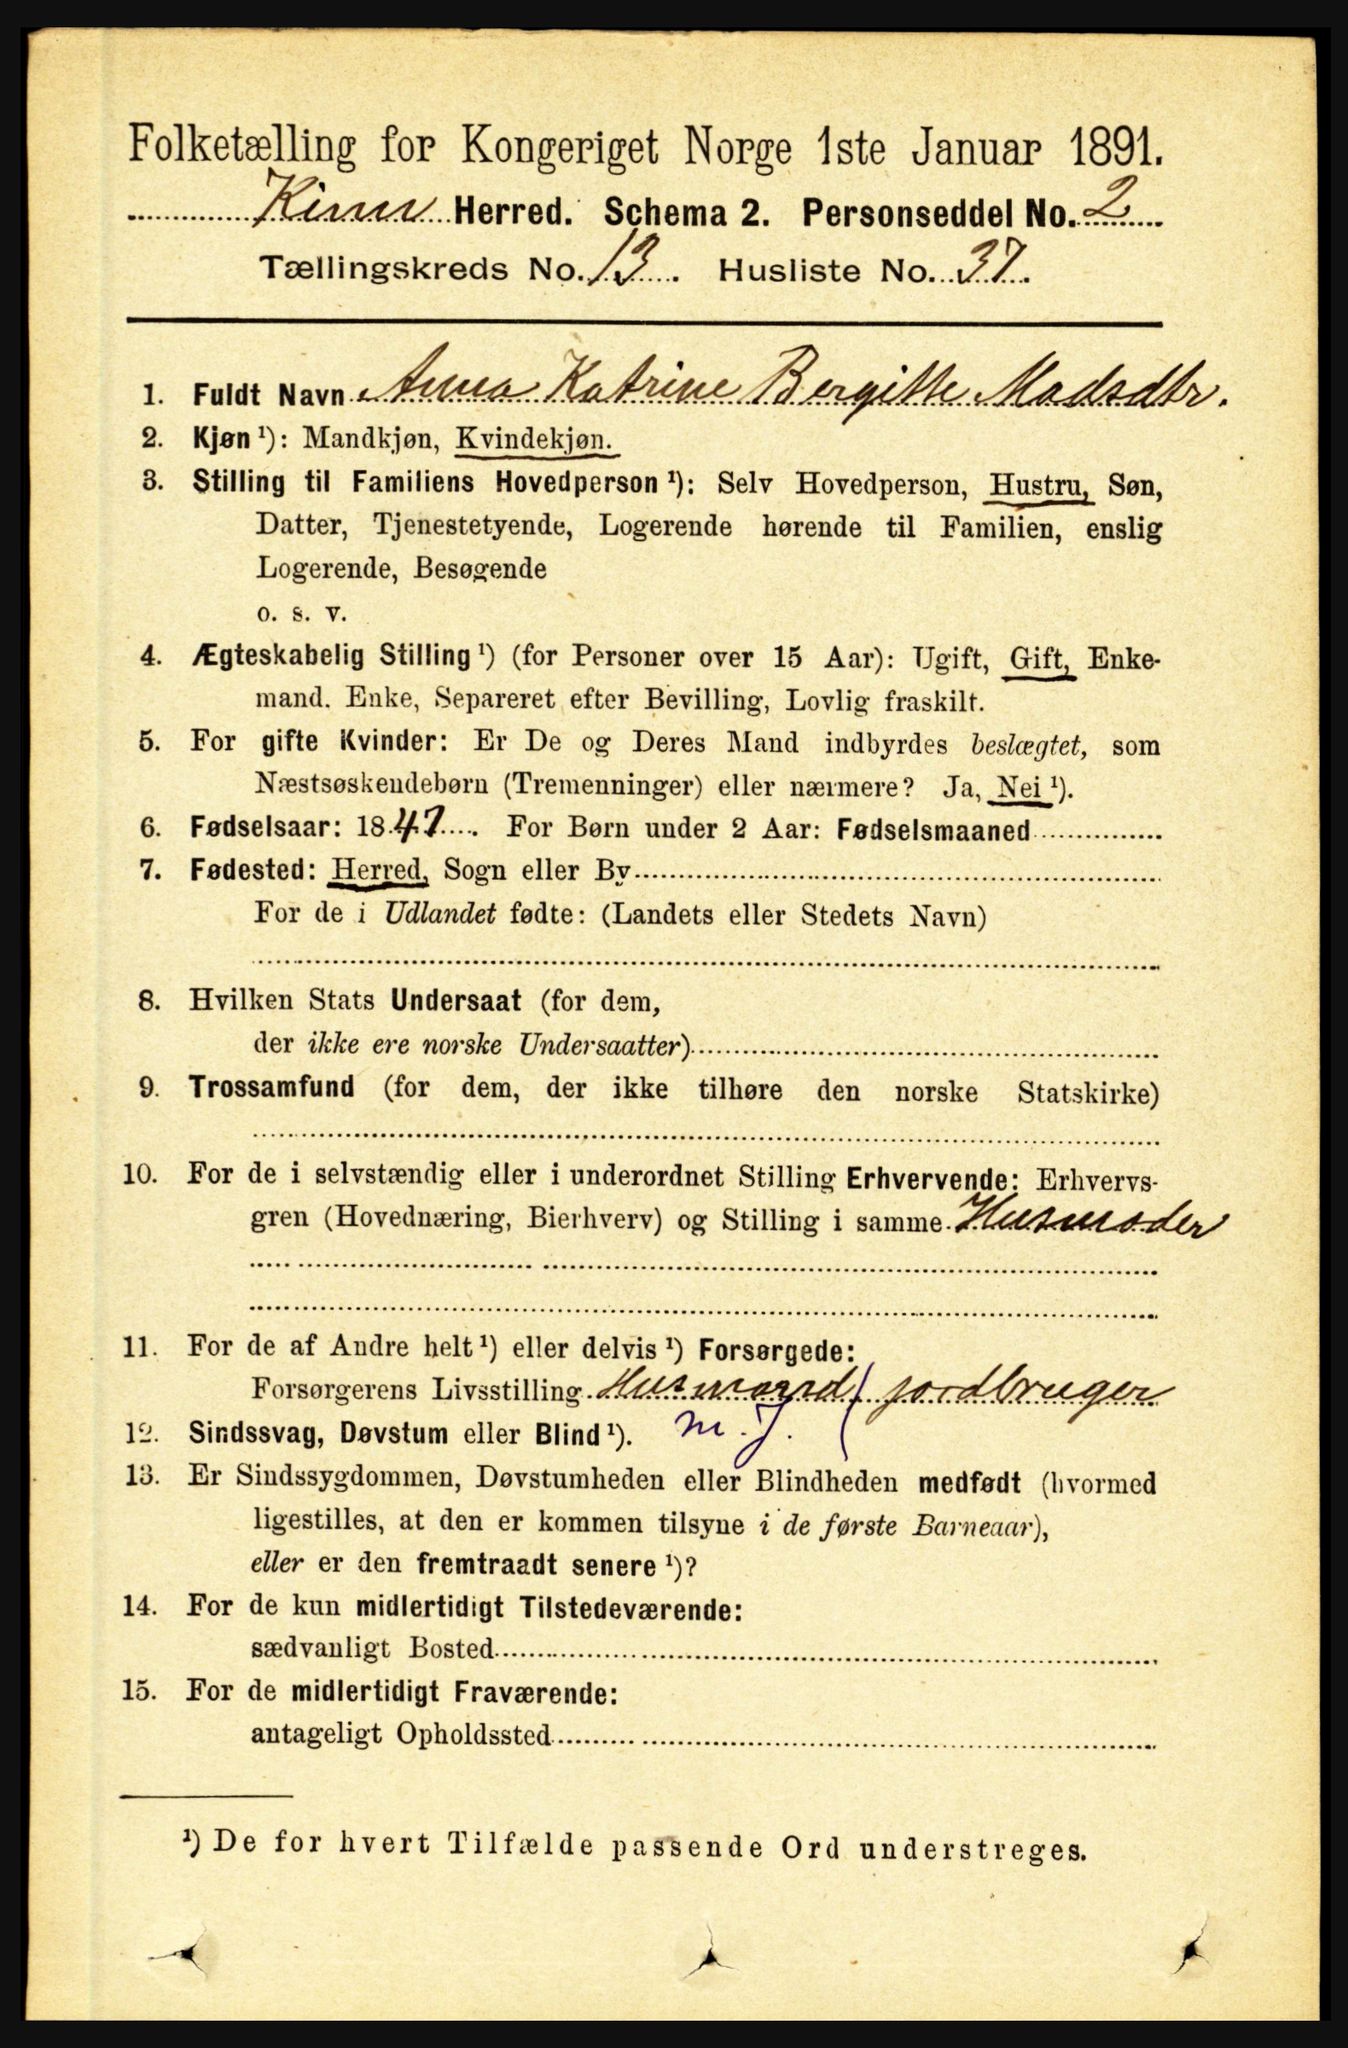 Folketælling for Kongeriget Norge 1ste Januar 1891.
Kinn Herred. Schema 2. Personseddel No. 2
Tællingskreds No. 13. Husliste No. 37.
1. Fuldt Navn Anna Katrine Bergitte Madsdtr.
2. Kjøn ¹): Mandkjøn, Kvindekjøn.
3. Stilling til Familiens Hovedperson ¹): Selv Hovedperson, Hustru, Søn,
Datter, Tjenestetyende, Logerende hørende til Familien, enslig
Logerende, Besøgende
o. s. v.
4. Ægteskabelig Stilling ¹) (for Personer over 15 Aar): Ugift, Gift, Enke-
mand. Enke, Separeret efter Bevilling, Lovlig fraskilt.
5. For gifte Kvinder: Er De og Deres Mand indbyrdes beslægtet, som
Næstsøskendebørn (Tremenninger) eller nærmere? Ja, Nei ¹).
6. Fødselsaar: 1847. For Børn under 2 Aar: Fødselsmaaned
7. Fødested: Herred, Sogn eller By
For de i Udlandet fødte: (Landets eller Stedets Navn)
8. Hvilken Stats Undersaat (for dem,
der ikke ere norske Undersaatter)
9. Trossamfund (for dem, der ikke tilhøre den norske Statskirke)
10. For de i selvstændig eller i underordnet Stilling Erhvervende: Erhvervs-
gren (Hovednæring, Bierhverv) og Stilling i samme Husmoder
11. For de af Andre helt ¹) eller delvis ¹) Forsørgede:
Forsørgerens Livsstilling Husmand ( jordbruger
12. Sindssvag, Døvstum eller Blind ¹). m. J.
13. Er Sindssygdommen, Døvstumheden eller Blindheden medfødt (hvormed
ligestilles, at den er kommen tilsyne i de første Barneaar),
eller er den fremtraadt senere ¹)?
14. For de kun midlertidigt Tilstedeværende:
sædvanligt Bosted
15. For de midlertidigt Fraværende:
antageligt Opholdssted
¹) De for hvert Tilfælde passende Ord understreges.